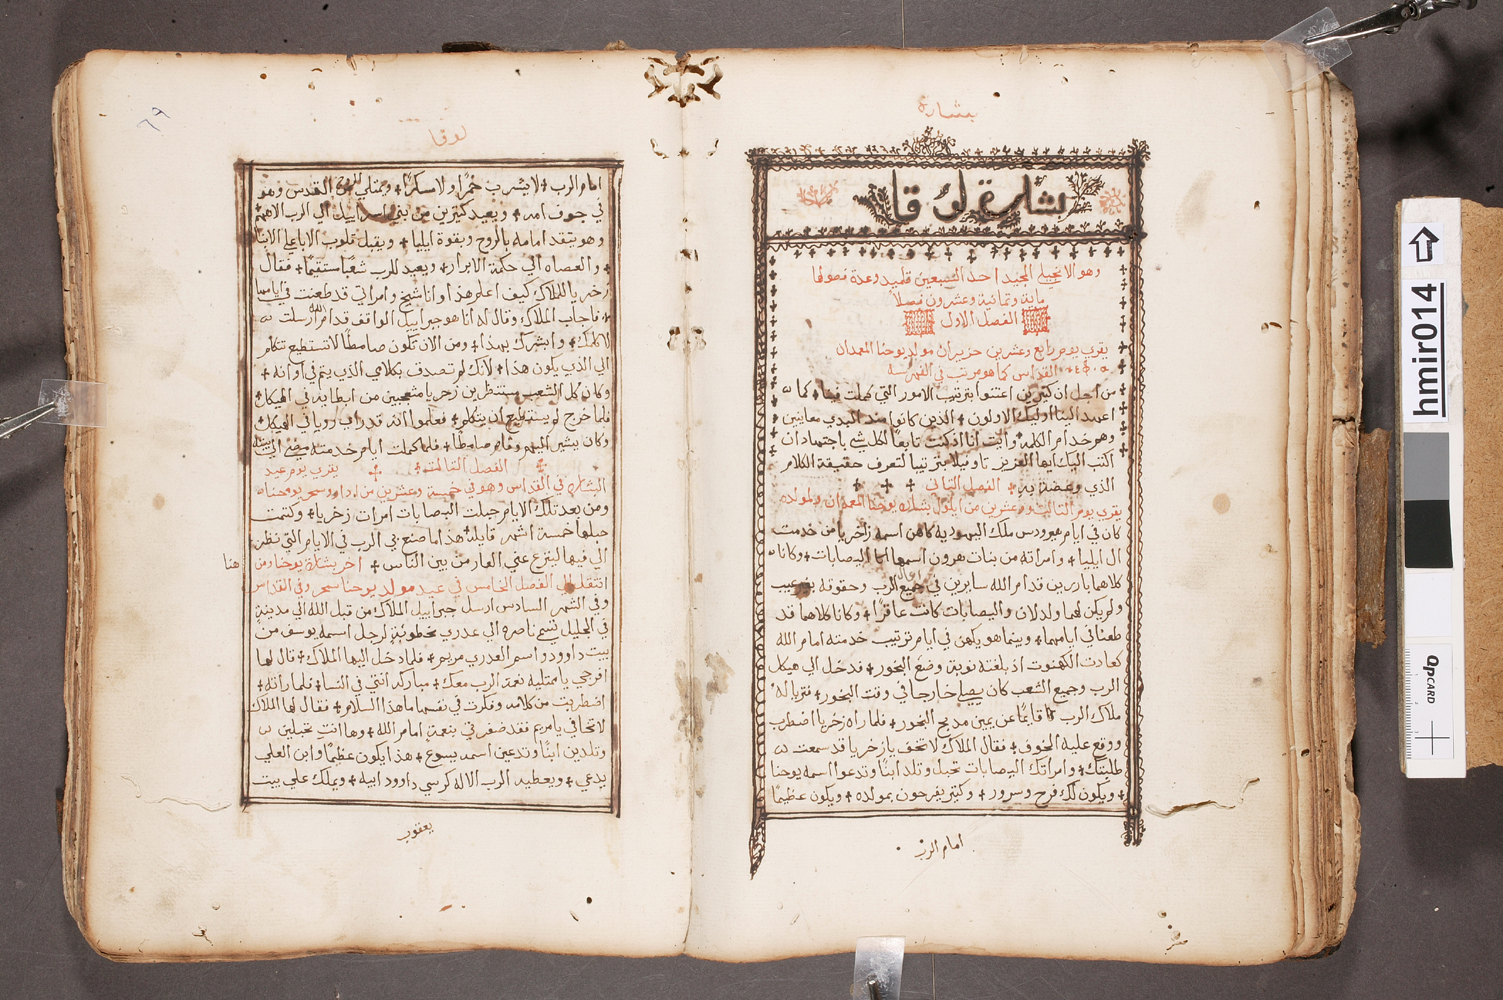 بشارة
بشارة لوقا
وهو الانجيل المجيد احد السبعين تلميد وعدة فصولها
ماية وتمانية وعشرون فصلاً
الفصل الاول
يقرب يوم رابع وعشرين حزيران مولد يوحنا المعمدان
القداس كما هو مرتب في الفهرسه
من اجل ان كتيرين اعتنوا بترتيب الامور التي كملت فينا + كما
اعهد الينا اوليك الاولون + الذين كانوا مند البدي معاينين
وهو خدام الكلمه + رايت انا اذ كنت تابعاً لكل شي باجتهاد ان
اكتب اليك ايها العزيز تاوفيلا بترتيبا لتعرف حقيقة الكلام
الذي وعضة به + الفصل التاني + + +
يقرب يوم التالت وعشرين من ايلول بشارة يوحنا المعمدان ولمولده
كان في ايام هيرودس ملك اليهوديه كاهن اسمه زاخريا من خدمت
ال ايليا + وامراتة من بنات هرون اسمها اليصابات + وكانا
كلاهما بارين قدام الله سايرين في جميع الرب وحقوقه بغير عيب
ولم يكن لهما ولد لان واليصابات كانت عاقرًا + وكانا كلاهما قد
طعنا في ايامهما + وبينما هو يكهن في ايام ترتيب خدمته امام الله
كعادت الكهنوت اذ بلغته نوبة وضع البخور + فدخل الي هيكل
الرب وجميع الشعب كان يصلي خارجا في وقت البخور + فتريا له
ملاك الرب قايمًا عن يمين مدبح البخور + فلما راه زخريا اضطرب
ووقع عليه الخوف + فقال الملاك لا تخف يا زخريا قد سمعت
طلبتك + وامراتك اليصابات تحبل وتلد ابنًا وتدعوا اسمه يوحنا
+ ويكون لك فرح وسرور + وكتير يفرحون بمولده + ويكون عظيمًا
امام الرب
لوقا
٦٩
امام الرب + لا يشرب خمرًا ولا سكرًا + ويمتلي من روح القدس وهو
في جوف امه + ويعيد كتيرين من بني اسراييل الي الرب الاههم
وهو يتقد امامه بالروح وبقوة ايليا + ويقبل بقلوب الابا علي الابنا
+ والعصاه الي حكمة الابرار + ويعيد للرب شعبًا مستقيمًا + فقال
زخريا للملاك كيف اعلم هذا وانا شيخ وامراتي قد طعنت في ايامها
+ فاجاب الملاك وقال له انا هو جبراييل الواقف قدام الله ارسلت
لاكلمك + وابشرك بهذا + ومن الان تكون صامطًا لا تستطيع تتكلم
الي الذي يكون هذا + لانك لم تصدف بكلامي الذي يتم في اوانه +
وكان كل الشعب منتظرين زخريا متعجبين من ابطايه في الهيكل
فلما خرج لم يستطيع ان يتكلم + فعلموا انه قد راي رويا في الهيكل
وكان يشير اليهم وقام صامطًا + فلما كملت ايام خدمته مضي الي بيته
+ الفصل التالت + + يقرب يوم عيد
البشاره في القداس وهو في خمسة وعشرين من ادار
ومن بعد تلك الايام حبلت اليصابات امرات زخريا + وكتمت
حبلها خمسة اشهر قايله هذا ما صنع بي الرب في الايام التي نظر
الي فيها لينزع عني العار من بين الناس + اخر بشارة يوحنا ومن هنا
انتقل الي الفصل الخامس في عيد مولد يوحنا
وفي الشهر السادس ارسل جبراييل الملاك من قبل الله الي مدينة
في الجليل تسمي ناصره الي عدري مخطوبة لرجل اسمه يوسف من
بيت داوود واسم العدري مريم + فلما دخل اليها الملاك + قال لها
افرحي يا ممتليه نعمة الرب معك + مباركه انتي في النسا + فلما راته +
اضطربت من كلامه وفكرت في نفسها ما هذا السلام + فقال لها الملاك
لا تخافي يا مريم فقد ضفرتي بنعمة امام الله + وها انت تحبلين
وتلدين ابنًا وتدعين اسمه يسوع + هذا يكون عظيمًا وابن العلي
يدعي + ويعطيه الرب الاله كرسي داوود ابيه + ويملك علي بيت
يعقوب
hmir014
QP CARD